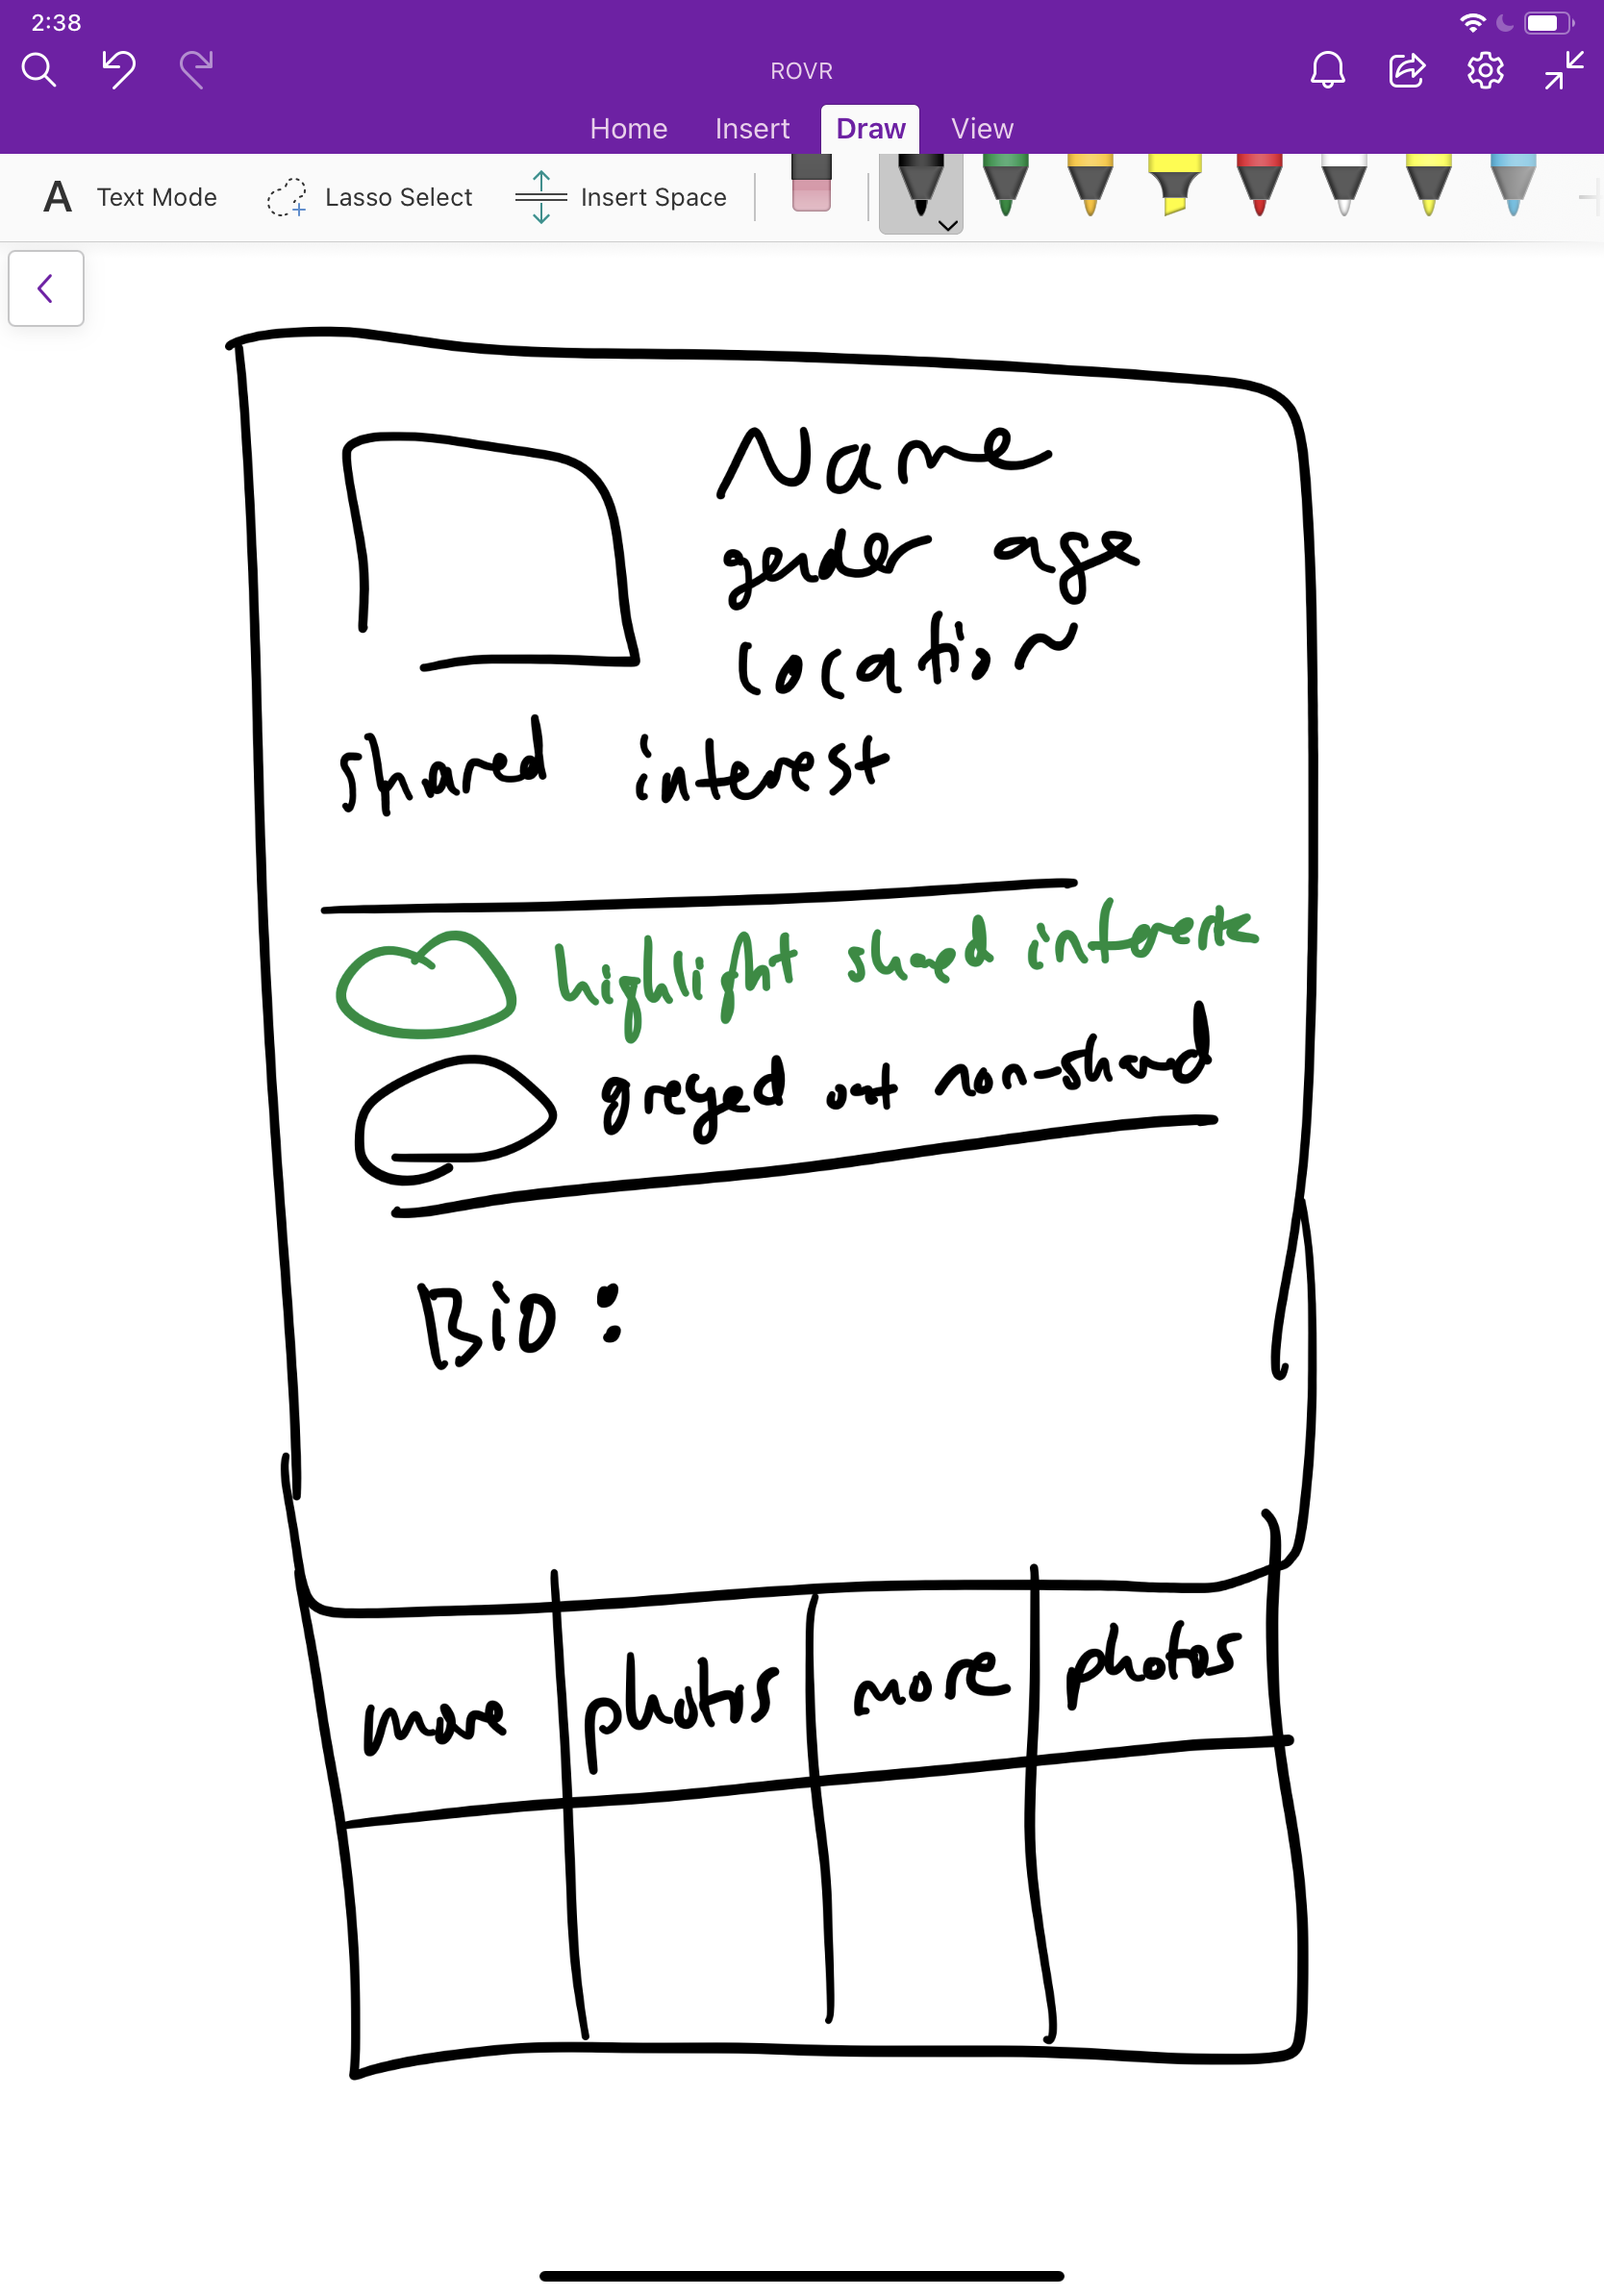 2:38
ROVR
Home Insert Draw View
A Text Mode Lasso Select Insert Space
Name
gender age
location
shared interest
highlight shared interests
greyed out non-shared
Bio:
more photos more photos